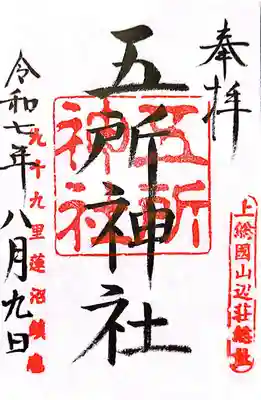 奉拝
上総國山辺荘総社
五所神社
五所神社
九十九里蓮沼鎮座
令和七年八月九日